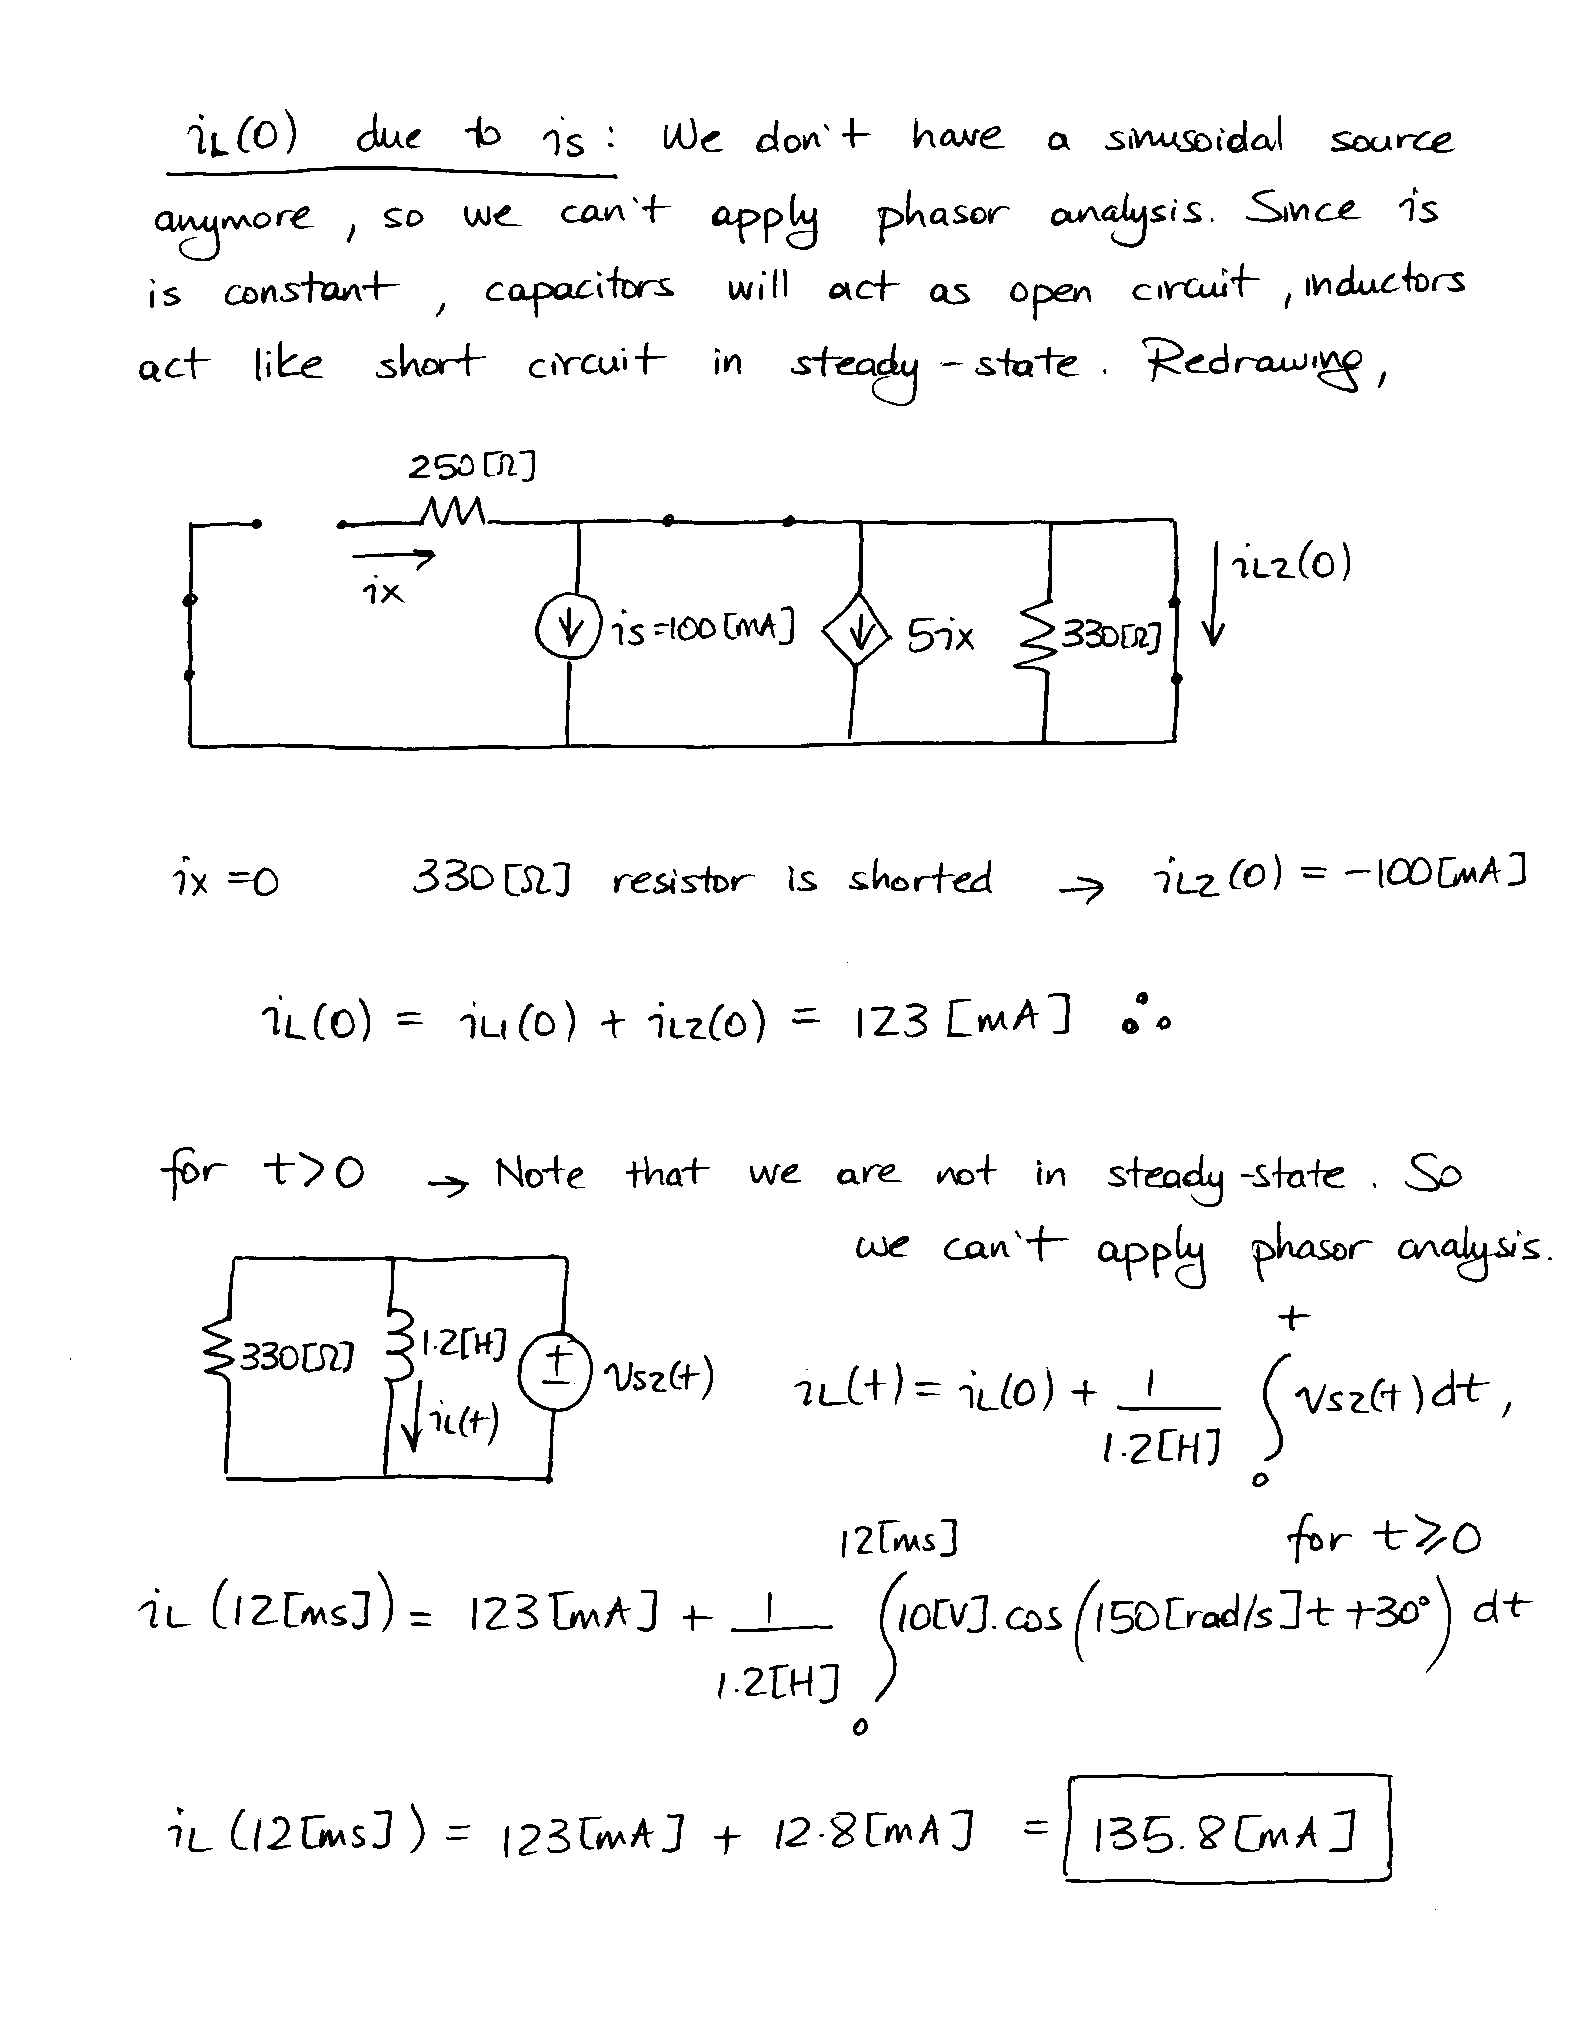 iL(0) due to is: We don't have a sinusoidal source
anymore, so we can't apply phasor analysis. Since is
is constant, capacitors will act as open circuit, inductors
act like short circuit in steady-state. Redrawing,
250[Ω]
ix
is=100[mA]
5ix
330[Ω]
iL2(0)
ix=0 330[Ω] resistor is shorted → iL2(0) = -100[mA]
iL(0) = iL1(0) + iL2(0) = 123[mA] ∴
for t>0 → Note that we are not in steady-state. So
we can't apply phasor analysis.
330[Ω]
1.2[H]
iL(t)
+
-
vs2(t)
iL(t) = iL(0) + 1/1.2[H] ∫₀ᵗ vs2(t)dt,
for t≥0
iL(12[ms]) = 123[mA] + 1/1.2[H] ∫₀^12[ms] 10[V].cos(150[rad/s]t+30°) dt
iL(12[ms]) = 123[mA] + 12.8[mA] = 135.8[mA]